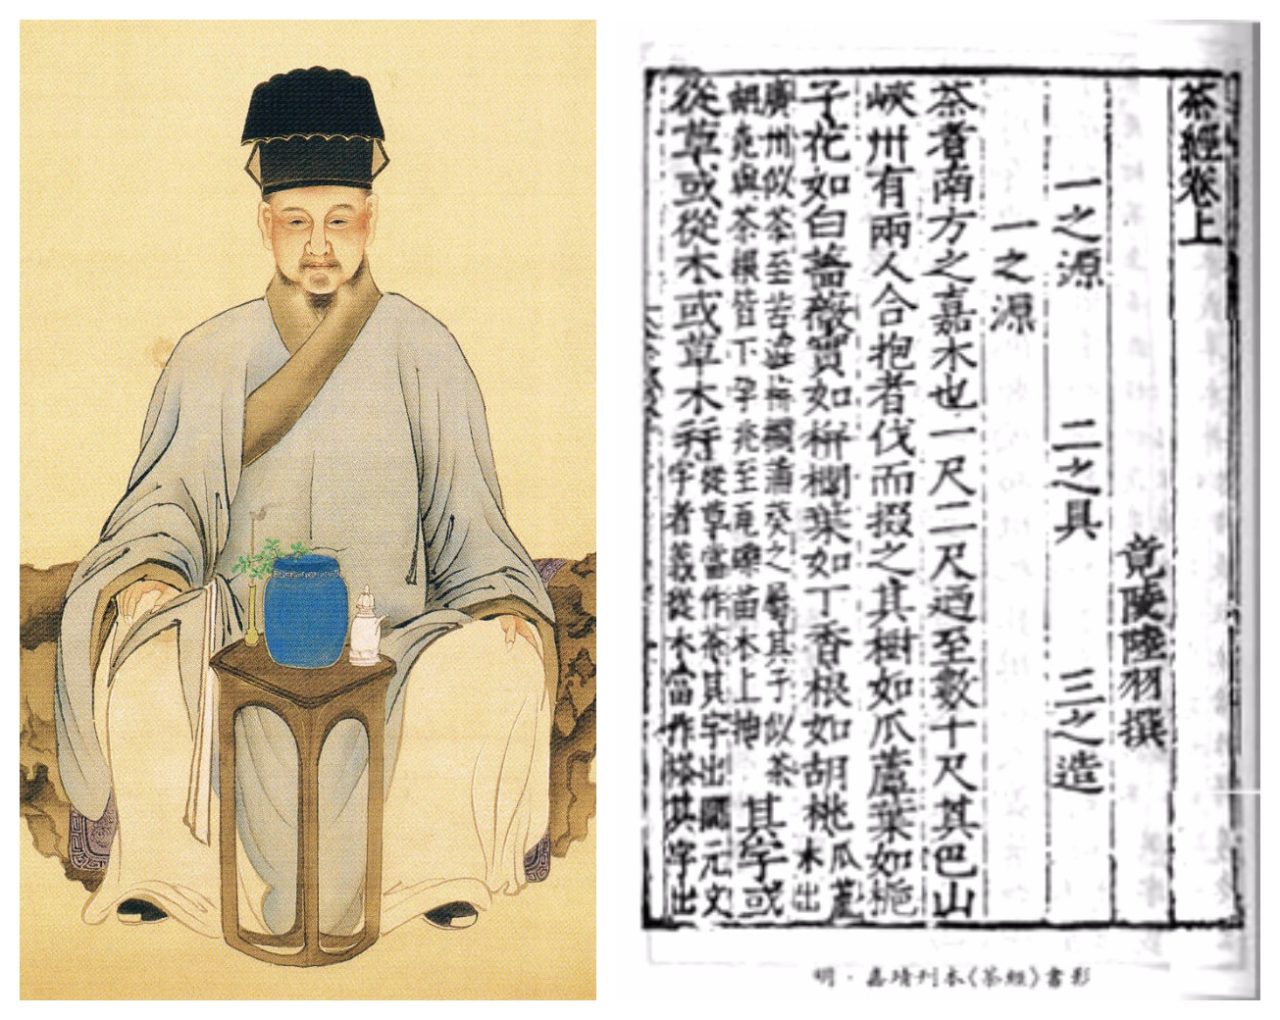 茶經卷上
竟陵陸羽撰
一之源 二之具 三之造
一之源
茶者南方之嘉木也一尺二尺迺至數十尺其巴山
峽川有兩人合抱者伐而掇之其樹如瓜蘆葉如梔
子花如白薔薇實如栟櫚葉如丁香根如胡桃 瓜蘆木出
廣州似茶至苦澁栟櫚蒲葵之屬其子似茶胡桃與茶根皆下孕兆至瓦礫苗木上抽 其字或
從草或從木或草木并 從草當作茶其字出開元文字者義從木當作搽其字出
明·嘉靖刊本《茶經》書影